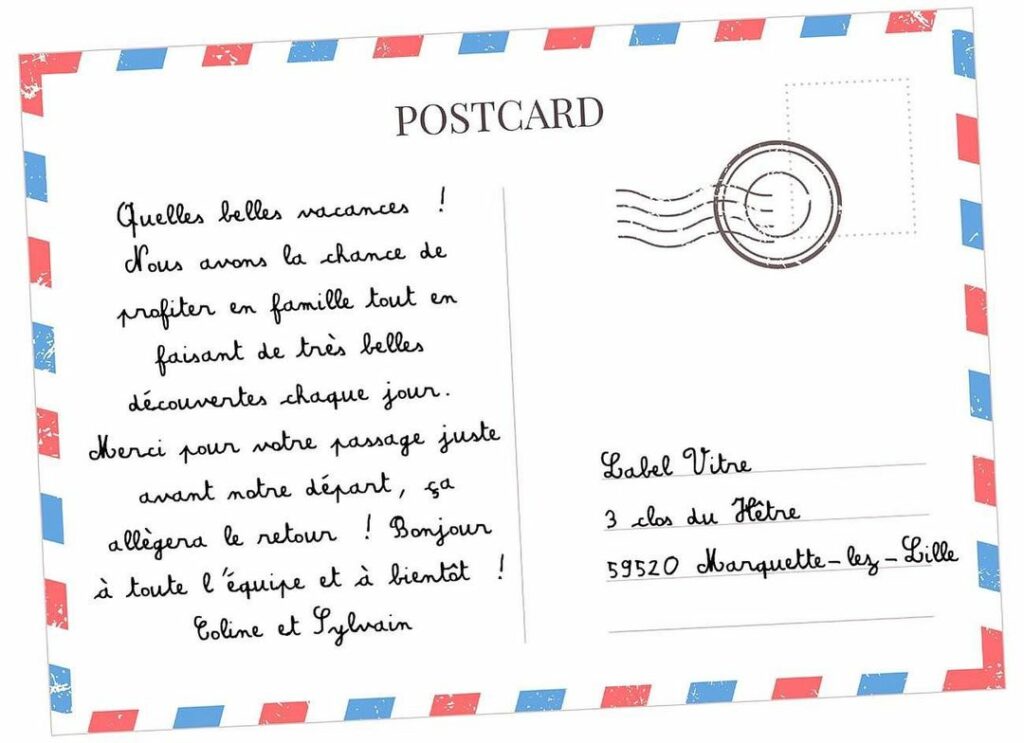 POSTCARD
Quelles belles vacances !
Nous avons la chance de
profiter en famille tout en
faisant de très belles
découvertes chaque jour.
Merci pour votre passage juste
avant notre départ, ça
allègera le retour ! Bonjour
à toute l'équipe et à bientôt !
Coline et Sylvain
Label Vitre
3 clos du Hêtre
59520 Marquette-lez-Lille